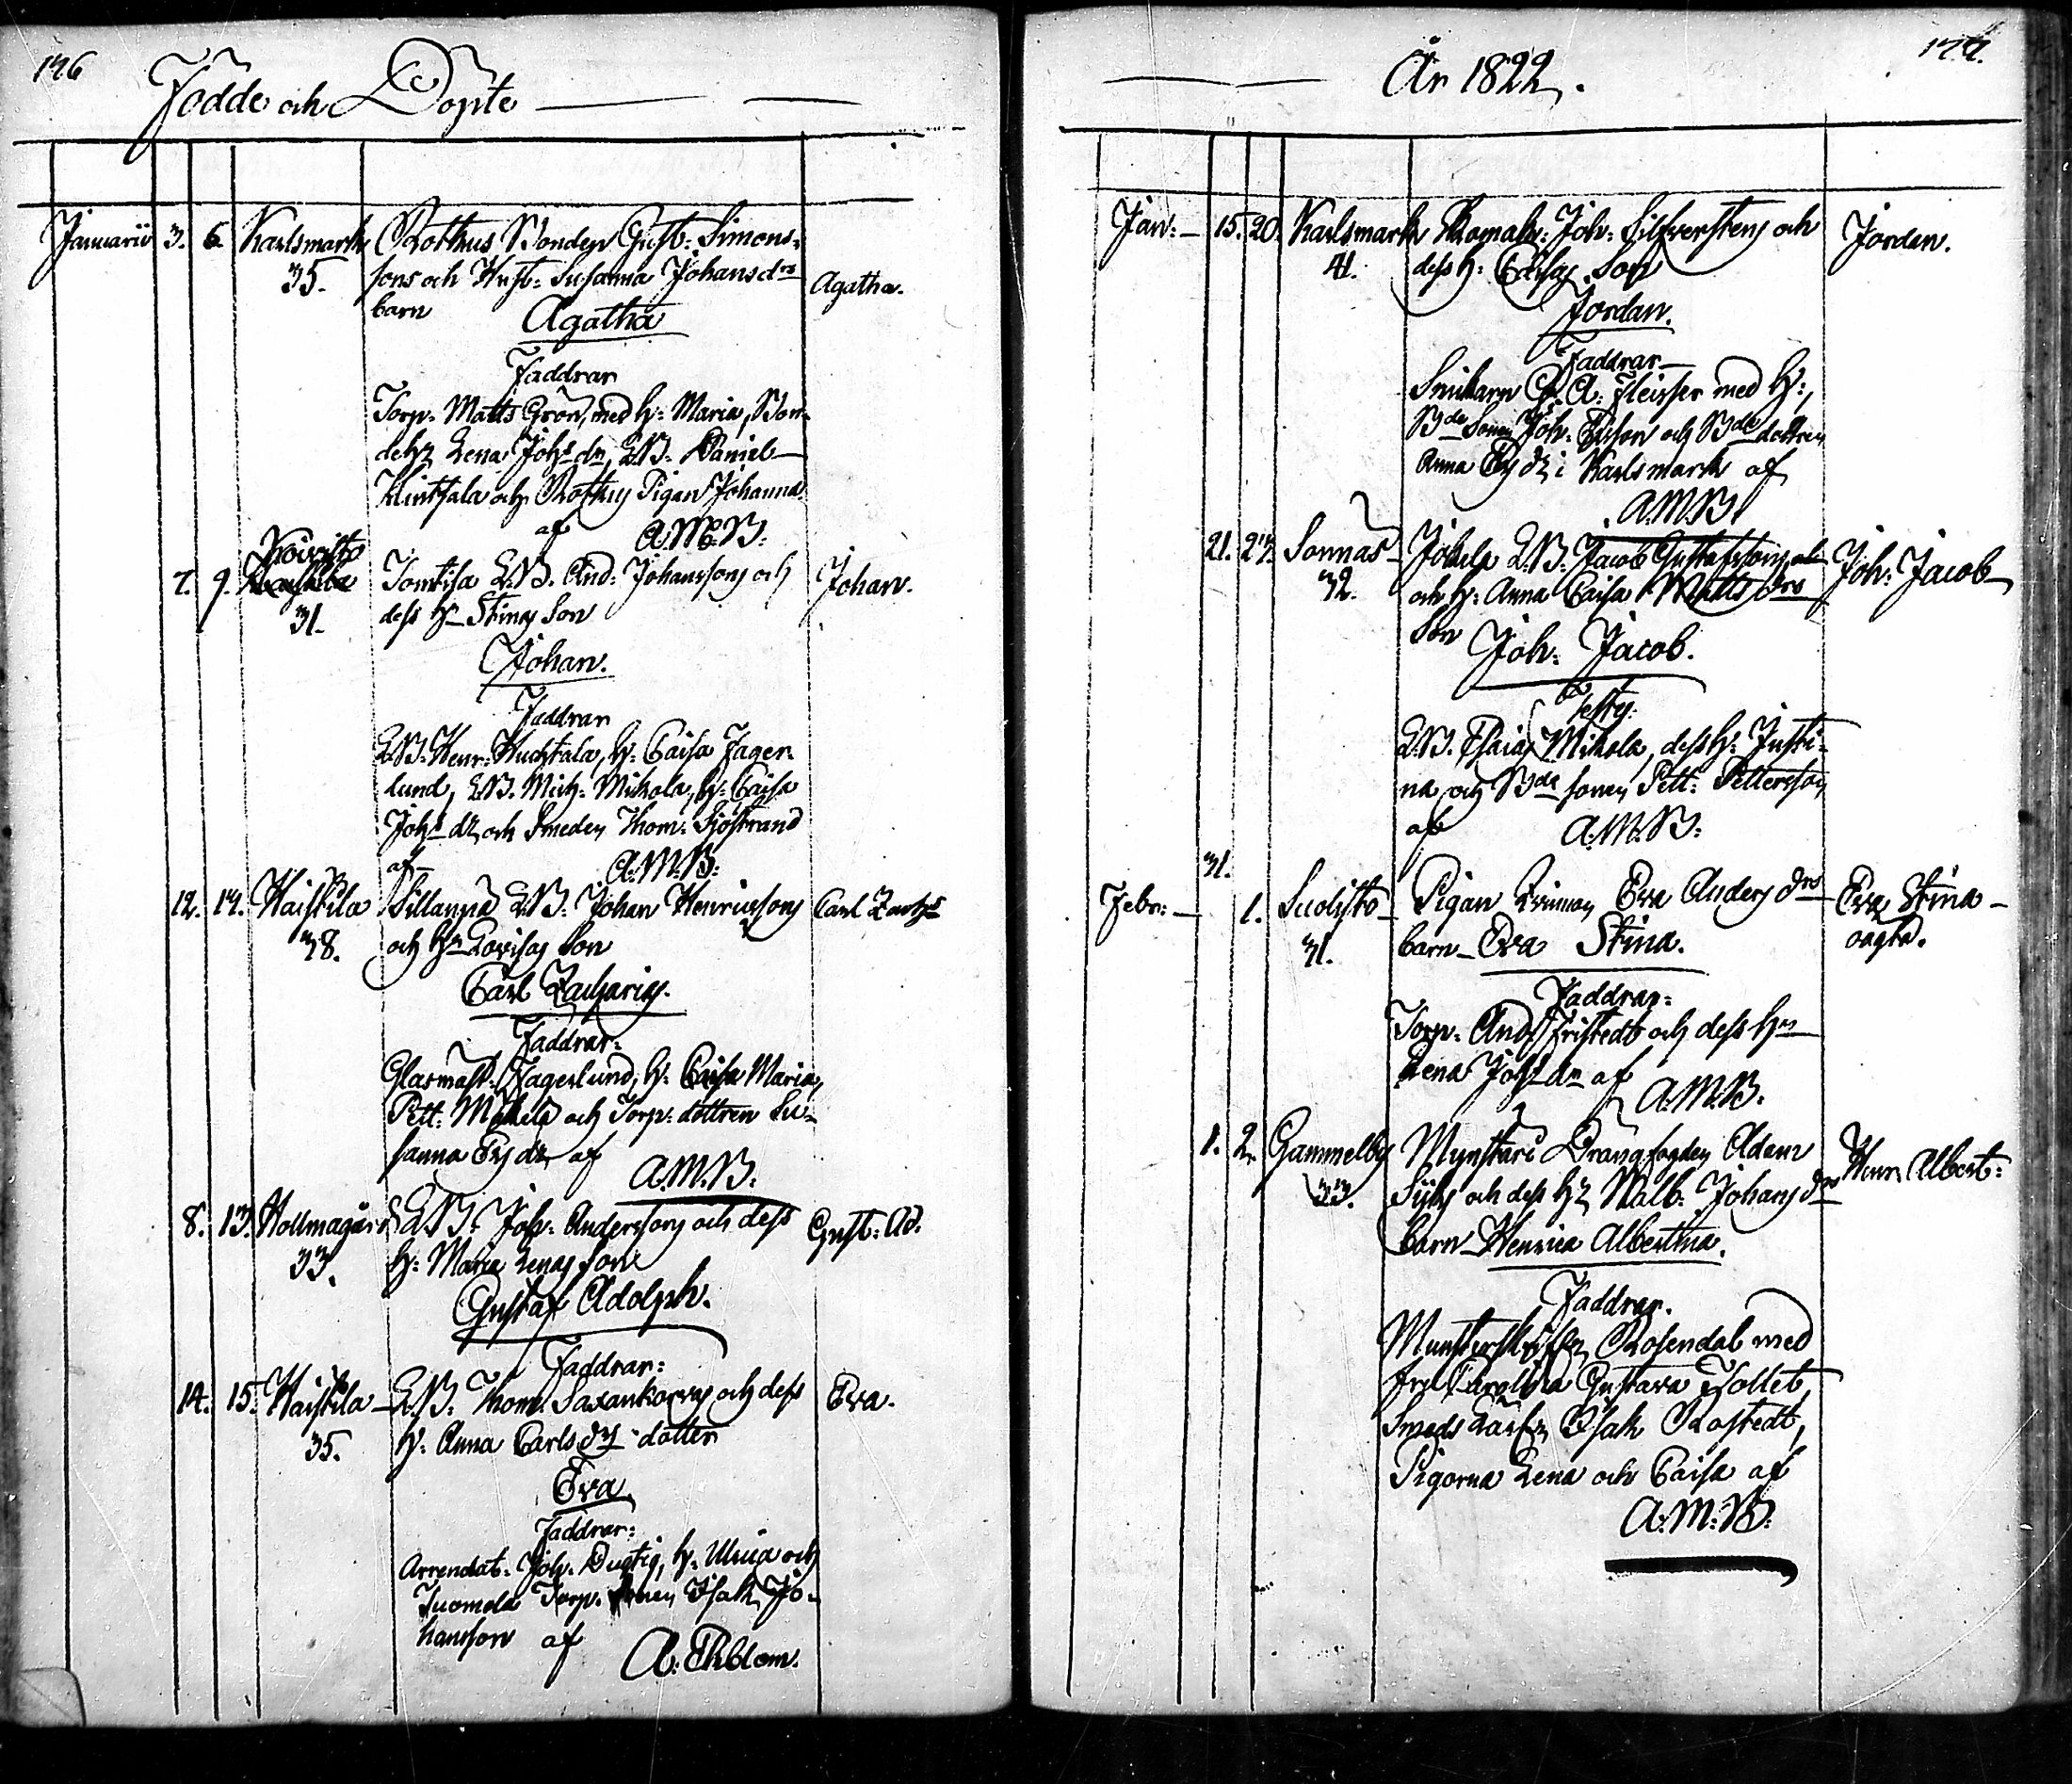 176
Födde och Döpte
Januarii 3. 6. Karlsmark
35.
Rothus Bonden Gust: Simons-
sons och Hust: Susanna Johansdrs
barn
Agatha
Agatha.
Faddrar
Torp: Matts Grön, med h: Maria, Bon-
deh: Lena Johsdr, LB. Daniel
och Rothus Pigan Johanna
af A.M.B:
7. 9. Koivisto
31.
LB. And: Johanssons och
dess h. Stinas Son
Johan.
Johan.
Faddrar
LB. Henr: h: Caisa Fager-
lund, LB. Mich: Mikola, h: Caisa
Johsdr och Smeden Thom: Sjöstrand
af A.M.B:
12. 14. Haistila
38.
Sillanpä LB: Johan Henricssons
och h. Lovisas Son
Carl Zacharias.
Carl Zachs
Faddrar:
Glasmäst: Fagerlund, h: Caisa Maria,
Pett: Mikola och Torp: dottren Su-
sanna dr af
A.M.B.
8. 13. Hollmagård
33.
LB. Joh: Anderssons och dess
h: Maria Lenas Son
Gustaf Adolph.
Gust: Ad.
Faddrar:
14. 15. Haistila
35.
LB. Thom. Saxankorvas och dess
h: Anna Carlsdrs dotter
Eva
Eva.
Faddrar:
Arrendat. Joh. Dugtig, h: Ulrica och
Tuomola Torp. Isak Jo-
hansson af
A: Ekblom.
År 1822.
177.
Jan: 15. 20. Karlsmark
41.
Joh: Silfverstens och
dess h: Caisas Son
Jordan.
Jordan.
Faddrar
A: Fleisser med h:,
Bde Sonen Joh: och Bde dottren
Anna dr i Karlsmark af
A.M.B.
21. 27. Sonnäs
32.
LB. Jacob Gustafssons
och h: Anna Caisa Mattsdrs
Son Joh: Jacob.
Joh: Jacob
Testes:
LB. Esaias Mikola, dess h: Justi-
na och Bde sonen Pett: Pettersson
af A.M.B:
31.
Febr: 1. Suolisto
31.
Pigan Eva Andersdrs
barn Eva Stina.
Eva Stina
oägta.
Faddrar:
Torp: And: Fristedt och dess h.
Lena Johsdr af
A.M.B.
1. 2. Gammelby
33.
Munstari Drängfogden Adam
och dess h: Walb: Johansdrs
barn Henrica Albertina.
Henr: Albert:
Faddrar.
Rosendal med
Carolina Gustava Tollet,
Isak Rostedt,
Pigorna Lena och Caisa af
A.M.B.